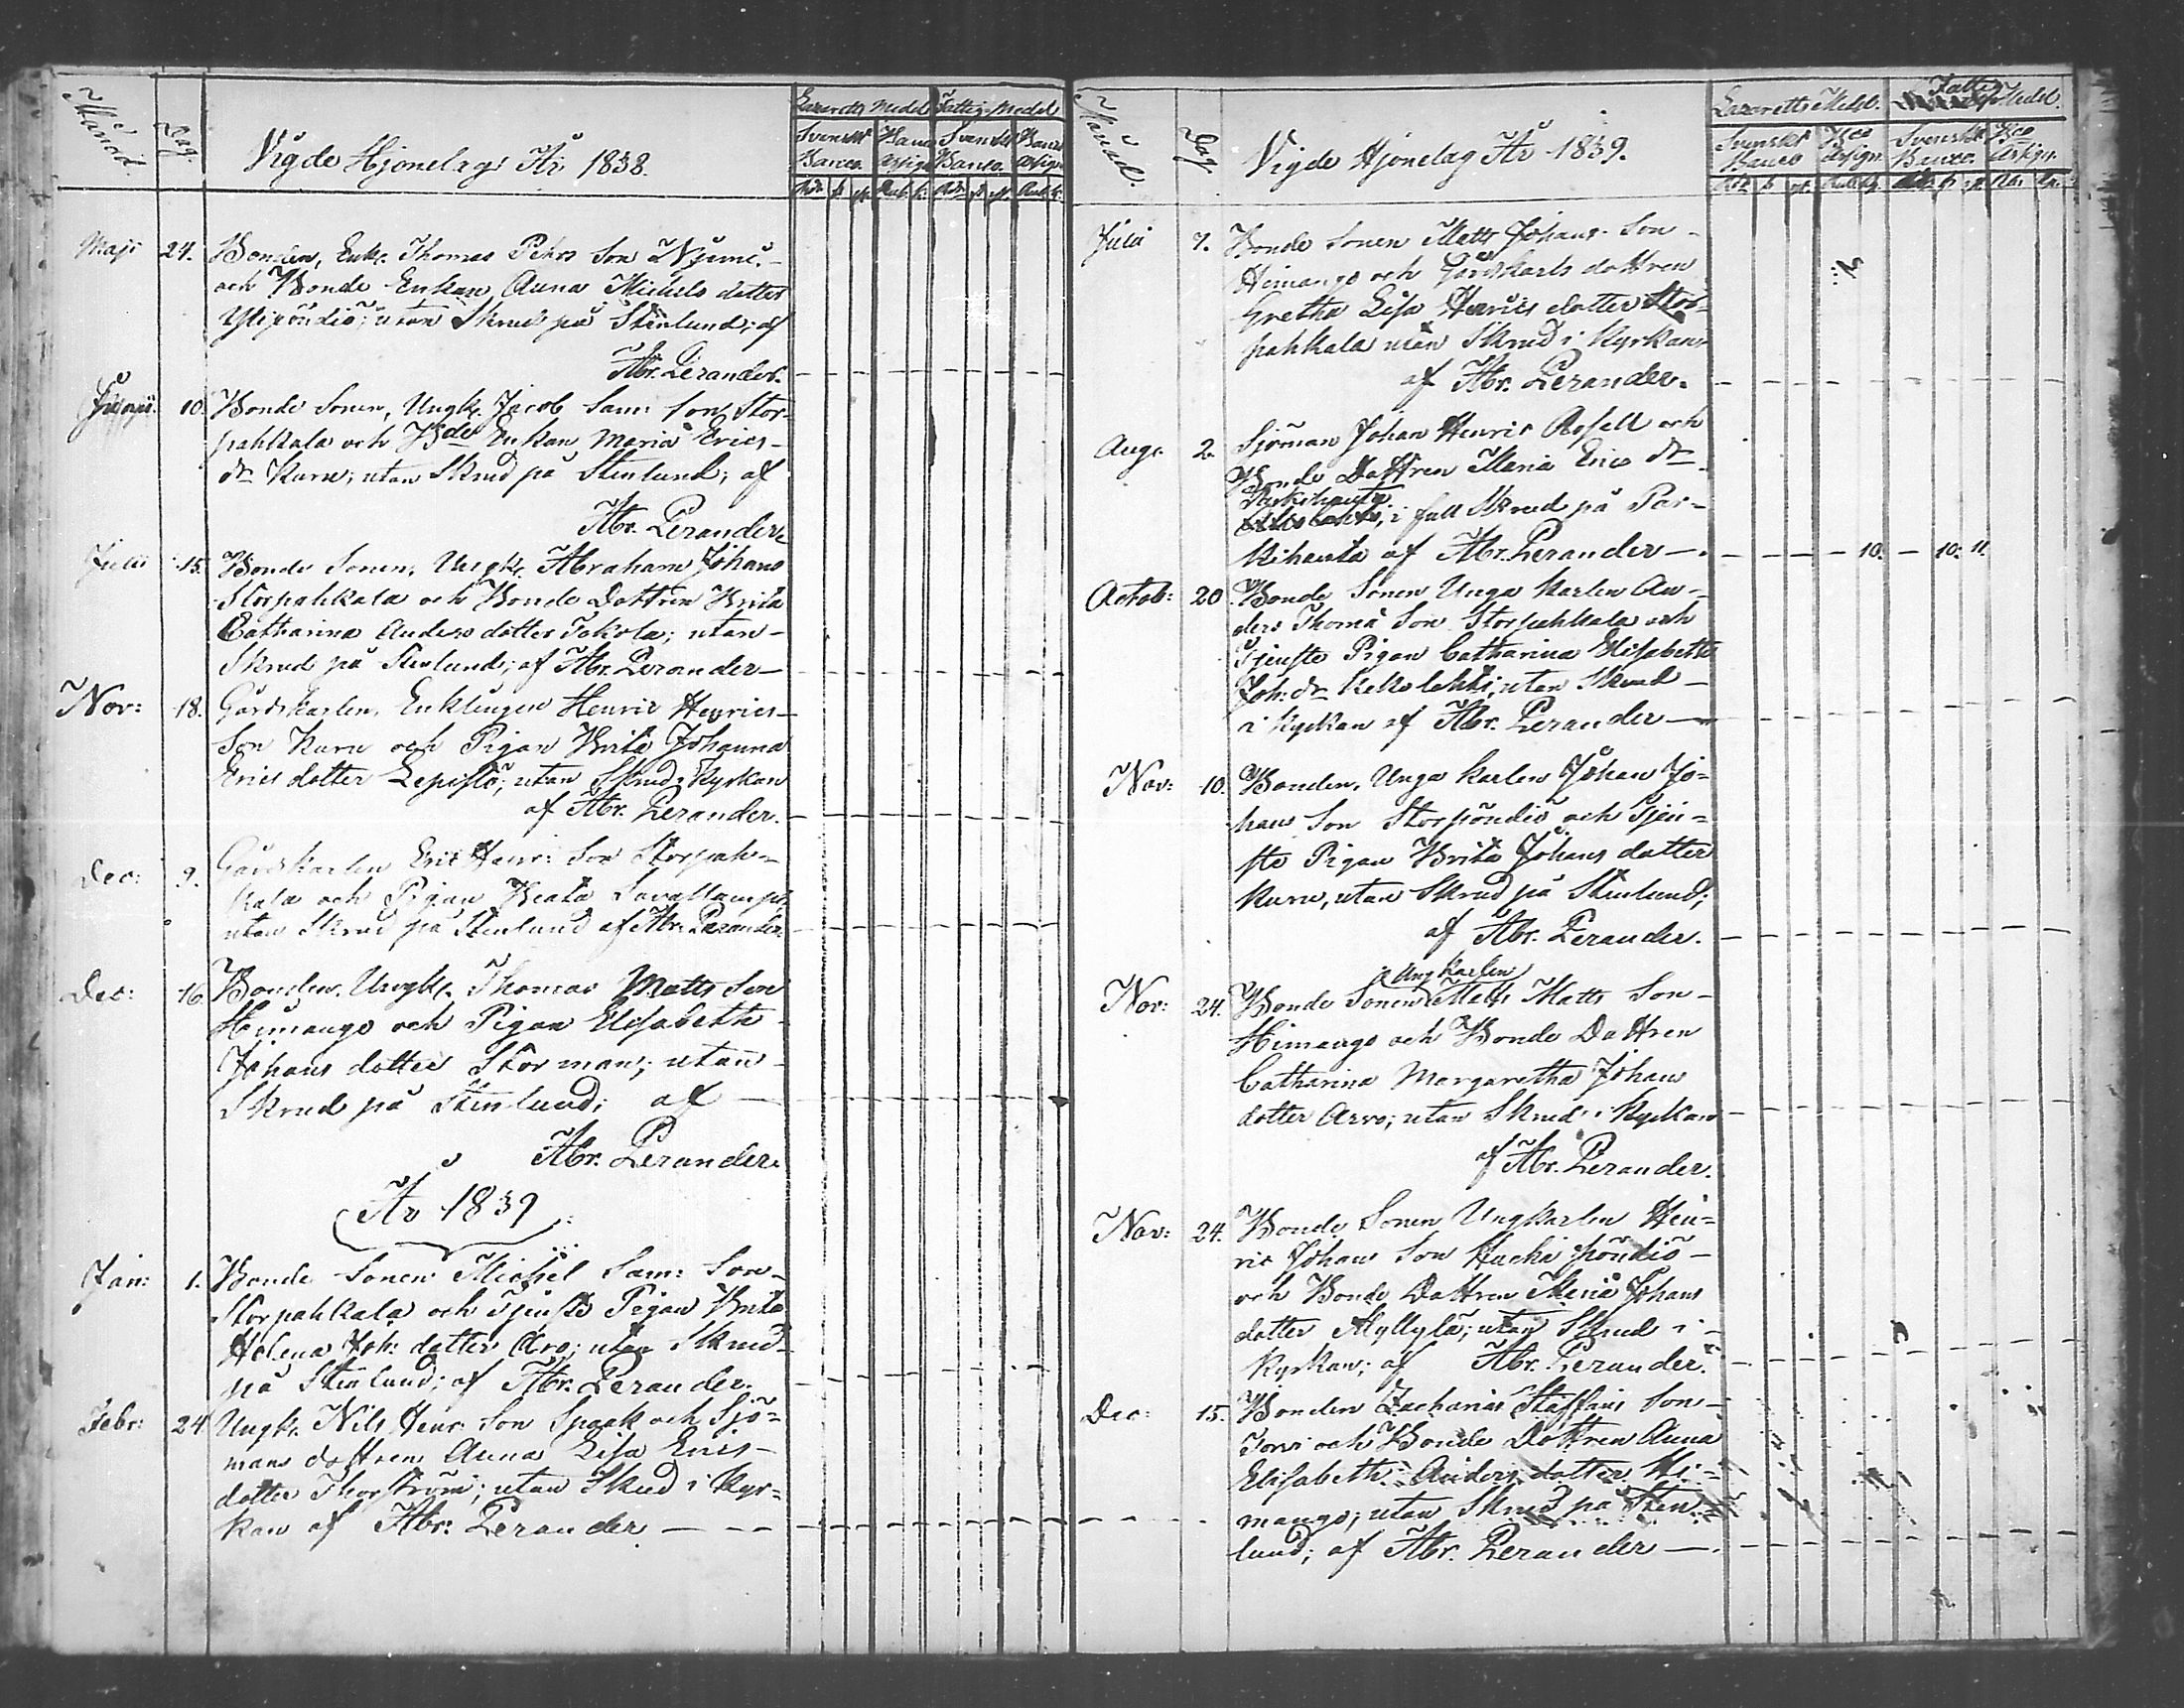 Månad.
Dag
Vigde Hjonelag År 1838.
Lazaretts Medel Fattig-Medel
Svenskt Banco Svenskt Banco
Banco. Assign. Banco. Assign.
Maji 24. Bonden, Enkl. Thomas Pehrs Son
och Bonde Enkan Anna Michels dotter
Ylipöndiö; utan Skrud på Stenlund; af
Abr. Perander.
10. Bonde Sonen, Ungk. Jacob Sam: son Stor-
pahkala och Bde Enkan Maria Erics-
dr Karu; utan Skrud på Stenlund; af
Abr. Perander
Julii 15. Bonde Sonen, Ungk. Abraham Johans
Storpahkala och Bonde Dottren Brita
Catharina Anders dotter Tokola; utan
Skrud på Stenlund; af Abr. Perander
Nov: 18. Gårdskarlen, Enklingen Henric Henrics
Son Karu och Pigan Brita Johanna
Erics dotter Lepistö; utan Skrud i Kyrkan
af Abr. Perander.
Dec: 9. Gårdskarlen Eric Henr: Son Storpah-
kala och Pigan Beata Savallampi
utan Skrud på Stenlund af Abr. Perander.
Dec: 16. Bonden, Ungk. Thomas Matts Son
Himango och Pigan Elisabeth
Johans dotter Storman; utan
Skrud på Stenlund; af
Abr. Perander.
År 1839
Jan: 1. Bonde Sonen Michel Sam: Son
Storpahkala och Tjenste Pigan Brita
Helena Joh: dotter Arvo; utan Skrud
på Stenlund; af Abr. Perander.
Febr: 24 Ungk. Nils Henr. Son Spaak och Sjö-
mans dottren Anna Lisa Erics-
dotter Thorström; utan Skrud i Kyr-
kan af Abr: Perander
Månad.
Dag
Vigde Hjonelag År 1839.
Lazaretts Medel. Fattig Medel.
Svenskt Bco Svenskt Bco
Banco Assign. Banco. Assign.
Julii 7. Bonde Sonen Matts Johans Son
Himango och Gårdskarls dottren
Gretha Lisa Henrics dotter Stor-
pahkala utan Skrud i Kyrkan
af Abr. Perander.
Aug. 2. Sjöman Johan Henric Rosell och
Bonde Dottren Maria Erics dr
Parkihauta
i full Skrud på Par-
kihauta af Abr. Perander 10. 10. 11.
Octob: 20 Bonde Sonen Unga Karlen An-
ders Thomæ Son Storpahkala och
Tjenste Pigan Catharina Elisabeth
Joh: dr Kekolahti; utan Skrud
i Kyrkan af Abr. Perander
Nov: 10. Bonden, Unga Karlen Johan Jo-
hans Son Storpöndiö och Tjen-
ste Pigan Brita Johans dotter
Karu, utan Skrud på Stenlund;
af Abr. Perander.
Ung Karlen
Nov: 24. Bonde Sonen Matts Matts Son
Himango och Bonde Dottren
Catharina Margaretha Johans
dotter Arvo; utan Skrud i Kyrkan
af Abr. Perander.
Nov: 24. Bonde Sonen Ungkarlen Hen-
ric Johans Son Huchapöndiö
och Bonde Dottren Maria Johans
dotter Myllylä; utan Skrud i
Kyrkan; af Abr. Perander.
Dec: 15. Bonden Zacharias Staffans Son
Torvi och Bonde Dottren Anna
Elisabeth Anders dotter Hi-
mango; utan Skrud på Sten-
lund; af Abr. Perander